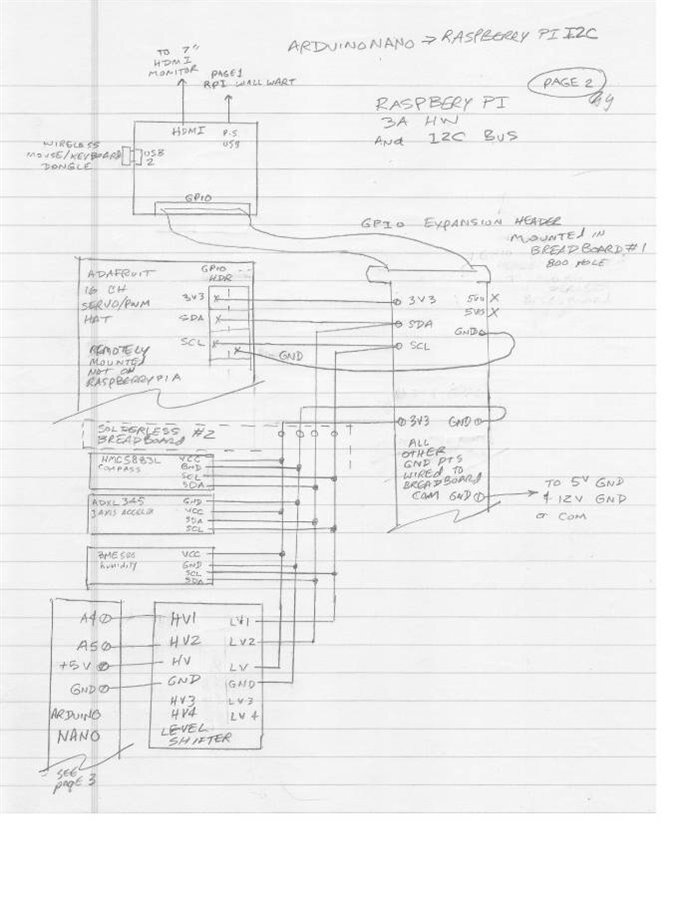 ARDUINO NANO → RASPBERRY PI I2C
TO 7"
HDMI
MONITOR
PAGE 1
RPI WALL WART
PAGE 2
RASPBERY PI
3A HW
And I2C BUS
HDMI
P.S
USB
WIRELESS
MOUSE/KEYBOARD
DONGLE
USB
2
GPIO
GPIO EXPANSION HEADER
MOUNTED IN
BREADBOARD #1
800 HOLE
ADAFRUIT
16 CH
SERVO/PWM
HAT
GPIO
HDR
3V3
SDA
SCL
GND
REMOTELY
MOUNTED
NOT ON
RASPBERRY PI A
3V3
SDA
SCL
5V0 X
5V0 X
GND
SOLDERLESS #2
BREADBOARD
3V3 GND
ALL
OTHER
GND PTS
WIRED TO
BREADBOARD
COM GND
TO 5V GND
& 12V GND
or COM
HMC5883L VCC
COMPASS GND
SCL
SDA
ADXL345 GND
3 AXIS ACCELO VCC
SDA
SCL
VCC
humidity GND
SCL
SDA
A4
A5
+5V
GND
ARDUINO
NANO
HV1 LV1
HV2 LV2
HV LV
GND GND
HV3 LV3
HV4 LV4
LEVEL
SHIFTER
SEE
page 3